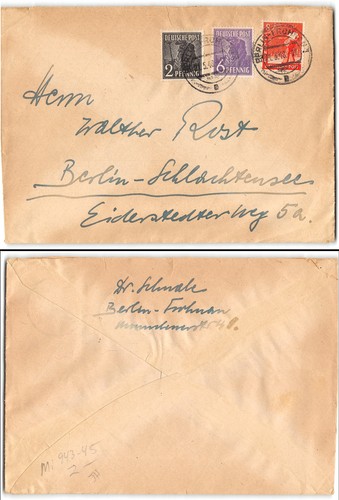 DEUTSCHE POST
2 PFENNIG
DEUTSCHE POST
6 PFENNIG
8
BERLIN
Herrn
Walther Rost
Berlin-Schlachtensee
Eiderstedterweg 5a.
Dr. Schwabe
Berlin-Frohnau
Mi 943-45
2-